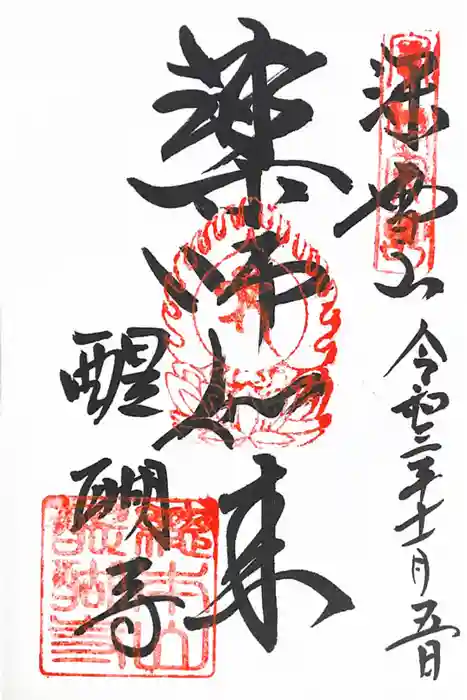 深雪山
令和三年十一月五日
薬師如来
醍醐寺
總本山
醍醐寺